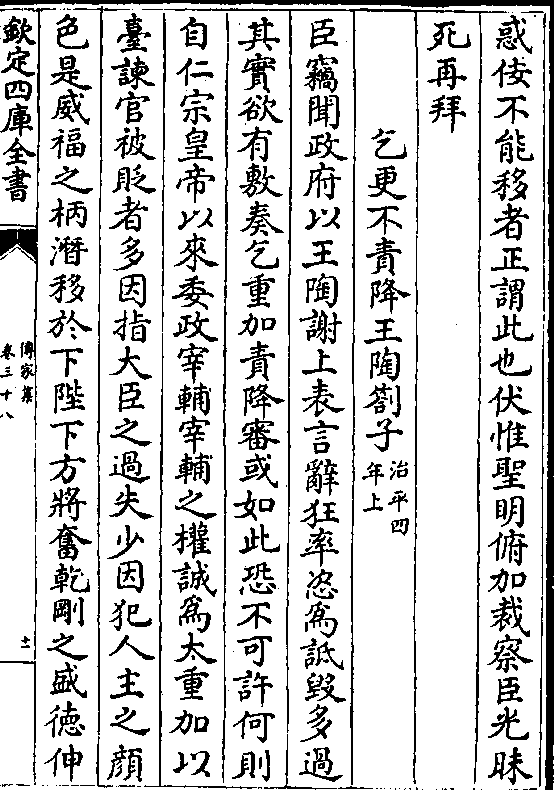 惑佞不能移者正謂此也伏惟聖明俯加裁察臣光昧
死再拜
乞更不責降王陶劄子治平四
年上
臣竊聞政府以王陶謝上表言辭狂率恣為詆毀多過
其實欲有敷奏乞重加責降審或如此恐不可許何則
自仁宗皇帝以來委政宰輔宰輔之權誠為太重加以
臺諫官被貶者多因指大臣之過失少因犯人主之顔
色是威福之柄潛移於下陛下方將奮乾剛之盛徳伸
欽定四庫全書
傳家集
卷三十八
十一